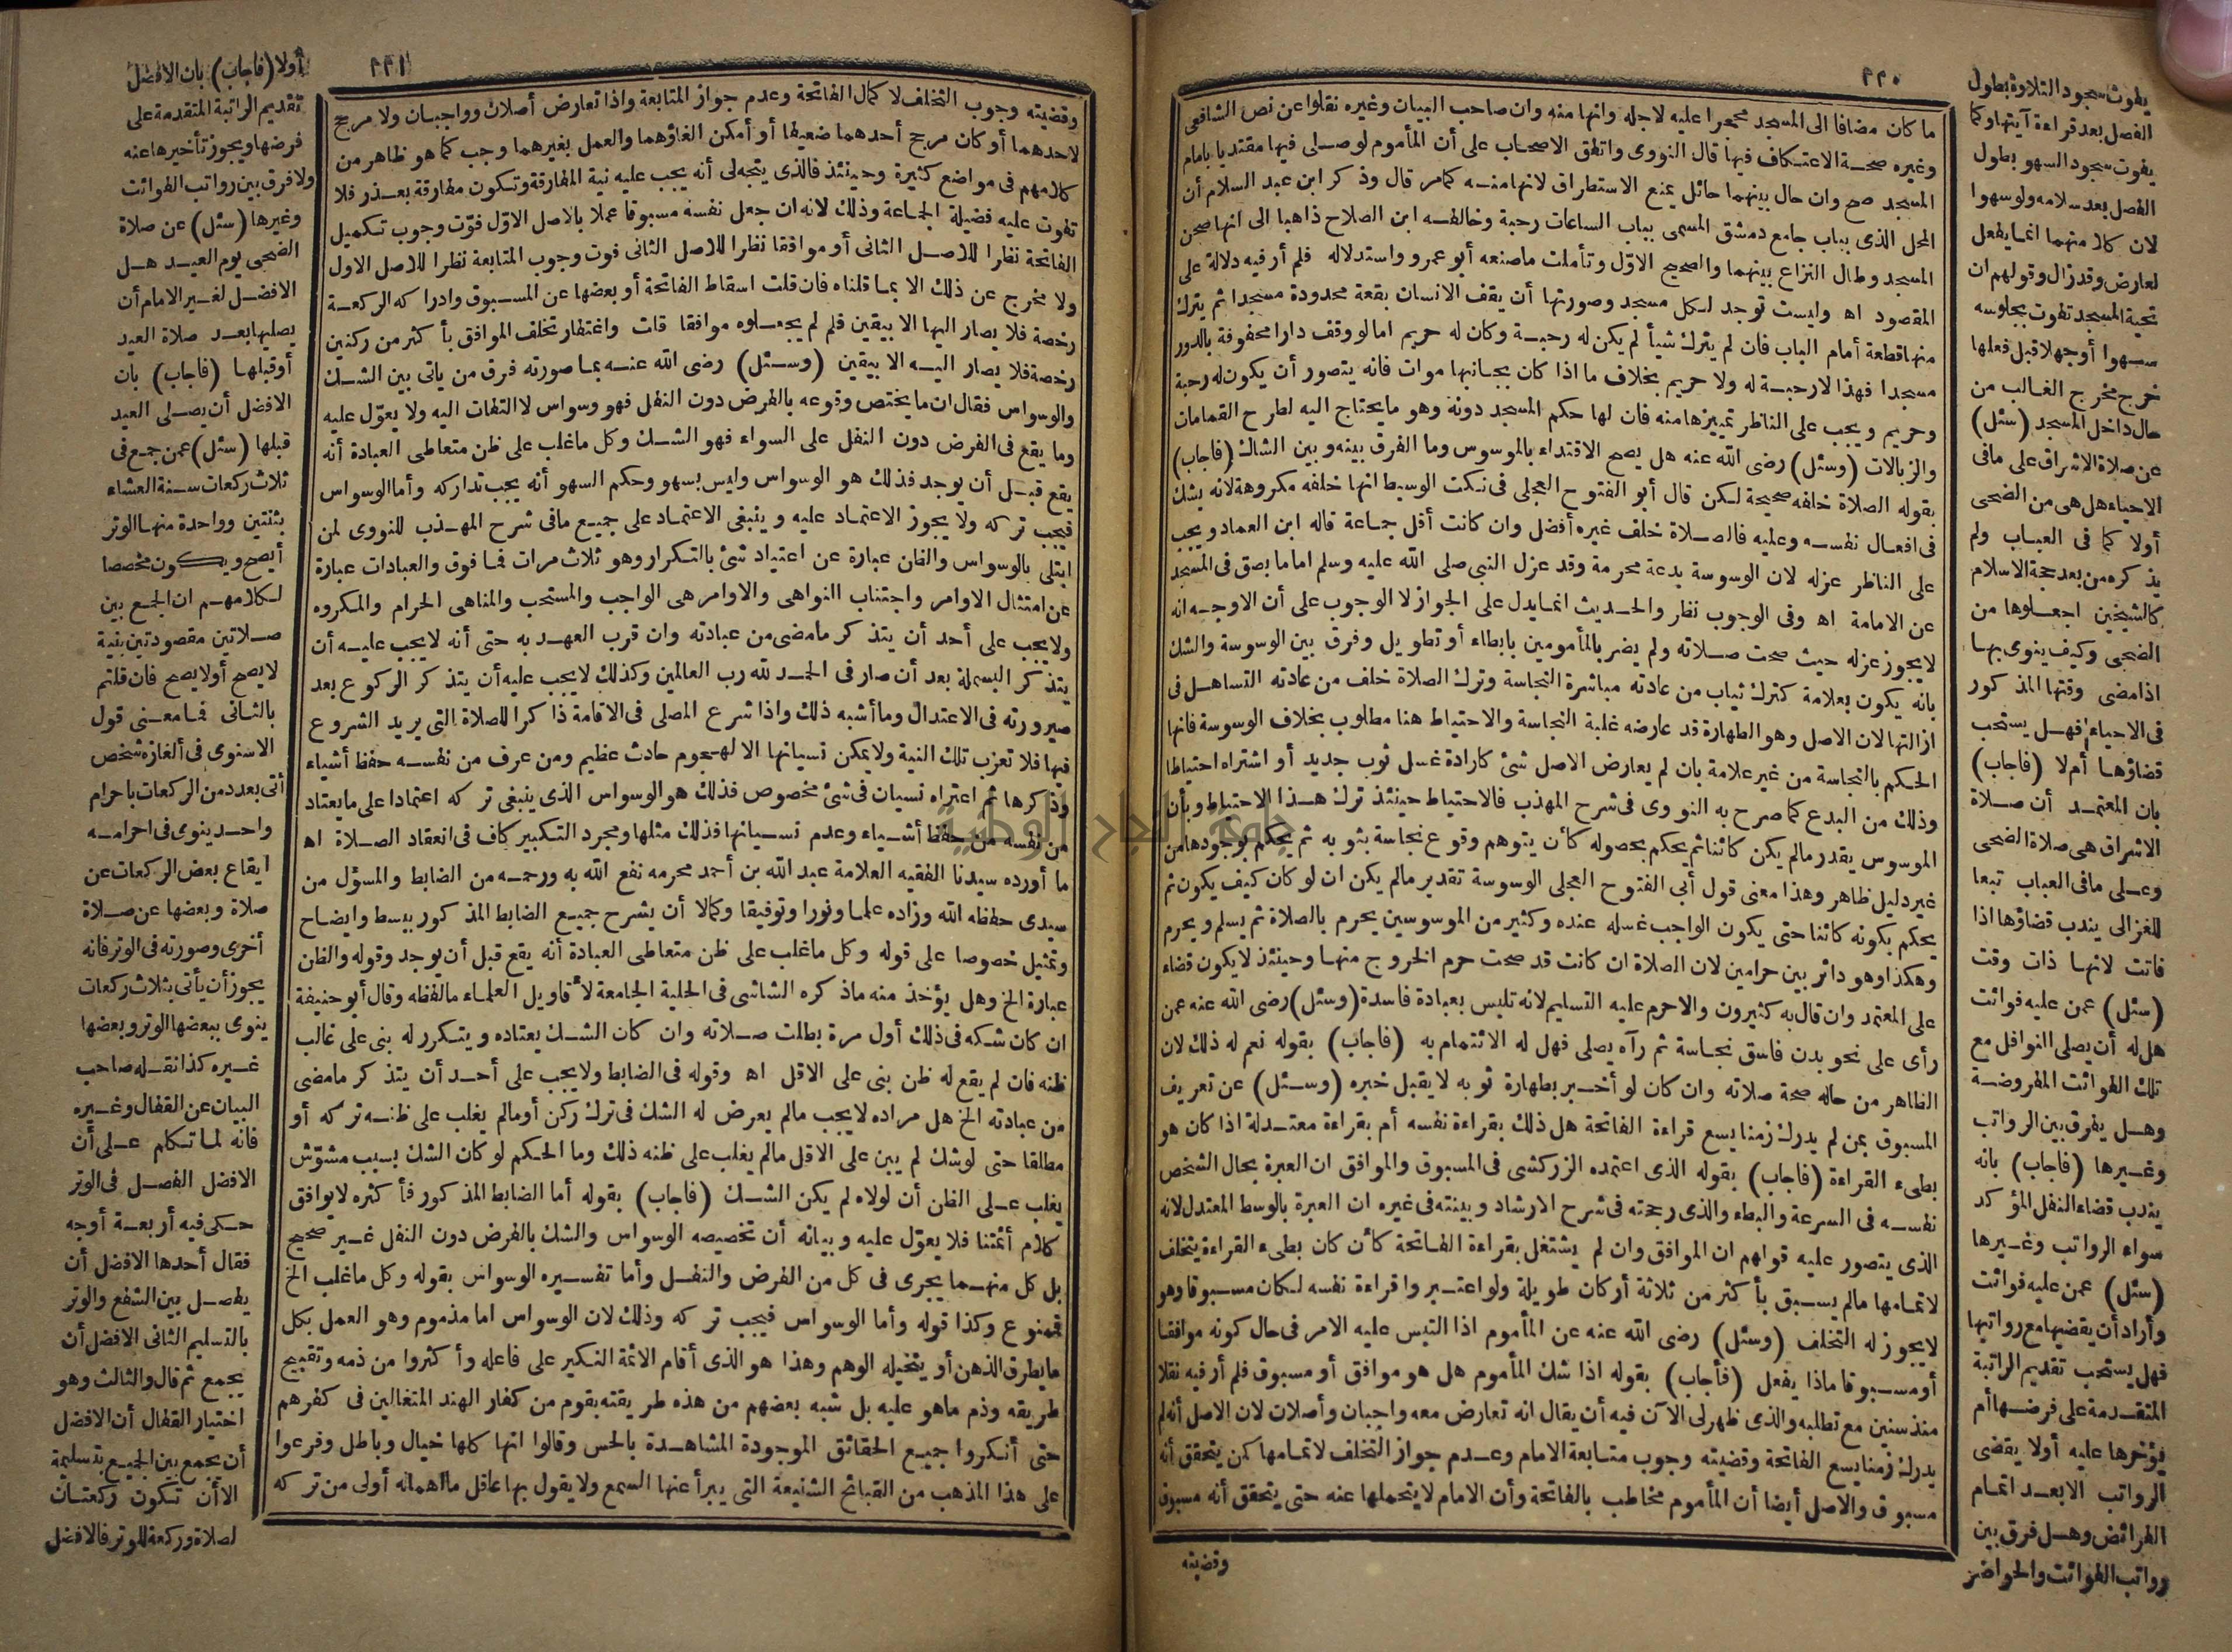 ٢٢٠
ما كان مضافا الى المسجد محجرا عليه لاجله وانها منه وان صاحب البيان وغيره نقلوا عن نص الشافعى
وغيره صحة الاعتكاف فيها قال النووى واتفق الاصحاب على أن المأموم لو صلى فيها مقتديا بامام
المسجد صح وان حال بينهما حائل يمنع الاستطراق لانها منه كما مر قال وذكر ابن عبد السلام أن
المحل الذى بباب جامع دمشق المسمى بباب الساعات رحبة وخالفه ابن الصلاح ذاهبا الى انها صحن
المسجد وطال النزاع بينهما والصحيح الاول وتأملت ما صنعه أبو عمرو واستدلاله فلم أر فيه دلالة على
المقصود اه وليست توجد لكل مسجد وصورتها أن يقف الانسان بقعة محدودة مسجدا ثم يترك
منها قطعة أمام الباب فان لم يترك شيأ لم يكن له رحبة وكان له حريم اما لو وقف دارا محفوفة بالدور
مسجدا فهذا لا رحبة له ولا حريم بخلاف ما اذا كان بجانبها موات فانه يتصور أن يكون له رحبة
وحريم ويجب على الناظر تمييزها منه فان لها حكم المسجد دونه وهو ما يحتاج اليه لطرح القمامات
والزبالات (وسئل) رضى الله عنه هل يصح الاقتداء بالموسوس وما الفرق بينه وبين الشاك (فاجاب)
بقوله الصلاة خلفه صحيحة لكن قال أبو الفتوح العجلى فى نكت الوسيط انها خلفه مكروهة لانه يشك
فى افعال نفسه وعليه فالصلاة خلف غيره أفضل وان كانت أقل جماعة قاله ابن العماد ويجب
على الناظر عزله لان الوسوسة بدعة محرمة وقد عزل النبى صلى الله عليه وسلم اماما بصق فى المسجد
عن الامامة اه وفى الوجوب نظر والحديث انما يدل على الجواز لا الوجوب على أن الاوجه انه
لا يجوز عزله حيث صحت صلاته ولم يضر بالمأمومين بابطاء أو تطويل وفرق بين الوسوسة والشك
بانه يكون بعلامة كترك ثياب من عادته مباشرة النجاسة وترك الصلاة خلف من عادته التساهل فى
ازالتها لان الاصل وهو الطهارة قد عارضه غلبة النجاسة والاحتياط هنا مطلوب بخلاف الوسوسة فانها
الحكم بالنجاسة من غير علامة بان لم يعارض الاصل شئ كارادة غسل ثوب جديد أو اشتراه احتياطا
وذلك من البدع كما صرح به النووى فى شرح المهذب فالاحتياط حينئذ ترك هذا الاحتياط وبأن
الموسوس يقدر ما لم يكن كائنا ثم يحكم بحصوله كأن يتوهم وقوع نجاسة بثوبه ثم يحكم بوجودها من
غير دليل ظاهر وهذا معنى قول أبى الفتوح العجلى الوسوسة تقدير ما لم يكن ان لو كان كيف يكون ثم
يحكم بكونه كائنا حتى يكون الواجب غسله عنده وكثير من الموسوسين يحرم بالصلاة ثم يسلم ويحرم
وهكذا وهو دائر بين حرامين لان الصلاة ان كانت قد صحت حرم الخروج منها وحينئذ لا يكون قضاء
على المعتمد وان قال به كثيرون والا حرم عليه التسليم لانه تلبس بعبادة فاسدة (وسئل) رضى الله عنه عمن
رأى على نحو بدن فاسق نجاسة ثم رآه يصلى فهل له الائتمام به (فاجاب) بقوله نعم له ذلك لان
الظاهر من حاله صحة صلاته وان كان لو أخبر بطهارة ثوبه لا يقبل خبره (وسئل) عن تعريف
المسبوق بمن لم يدرك زمنا يسع قراءة الفاتحة هل ذلك بقراءة نفسه أم بقراءة معتدلة اذا كان هو
بطىء القراءة (فاجاب) بقوله الذى اعتمده الزركشى فى المسبوق والموافق ان العبرة بحال الشخص
نفسه فى السرعة والبطء والذى رجحته فى شرح الارشاد وبينته فى غيره ان العبرة بالوسط المعتدل لانه
الذى يتصور عليه قولهم ان الموافق وان لم يشتغل بقراءة الفاتحة كأن كان بطىء القراءة يتخلف
لاتمامها ما لم يسبق بأكثر من ثلاثة أركان طويلة ولو اعتبروا قراءة نفسه لكان مسبوقا وهو
لا يجوز له التخلف (وسئل) رضى الله عنه عن المأموم اذا التبس عليه الامر فى حال كونه موافقا
أو مسبوقا ماذا يفعل (فأجاب) بقوله اذا شك المأموم هل هو موافق أو مسبوق فلم أر فيه نقلا
منذ سنين مع تطلبه والذى ظهر لى الآن فيه أن يقال انه تعارض معه واجبان وأصلان لان الاصل أنه لم
يدرك زمنا يسع الفاتحة وقضيته وجوب متابعة الامام وعدم جواز التخلف لاتمامها كمن يتحقق أنه
مسبوق والاصل أيضا أن المأموم مخاطب بالفاتحة وأن الامام لا يتحملها عنه حتى يتحقق أنه مسبوق
وقضيته
يفوت سجود التلاوة بطول
الفصل بعد قراءة آيتها وكما
يفوت سجود السهو بطول
الفصل بعد سلامه ولو سهوا
لان كلا منهما انما يفعل
لعارض وقد زال وقولهم ان
تحية المسجد تفوت بجلوسه
سهوا أو جهلا قبل فعلها
خرج مخرج الغالب من
حال داخل المسجد (سئل)
عن صلاة الاشراق على ما فى
الاحياء هل هى من الضحى
أولا كما فى العباب ولم
يذكره من بعد حجة الاسلام
كالشيخين اجعلوها من
الضحى وكيف ينوى بها
اذا مضى وقتها المذكور
فى الاحياء فهل يستحب
قضاؤها أم لا (فاجاب)
بان المعتمد أن صلاة
الاشراق هى صلاة الضحى
وعلى ما فى العباب تبعا
للغزالى يندب قضاؤها اذا
فاتت لانها ذات وقت
(سئل) عمن عليه فوائت
هل له أن يصلى النوافل مع
تلك الفوائت المفروضة
وهل يفرق بين الرواتب
وغيرها (فاجاب) بانه
يندب قضاء النفل المؤكد
سواء الرواتب وغيرها
(سئل) عمن عليه فوائت
وأراد أن يقضيها مع رواتبها
فهل يستحب تقديم الراتبة
المتقدمة على فرضها أم
يؤخرها عليه أولا يقضى
الرواتب الا بعد اتمام
الفرائض وهل فرق بين
رواتب الفوائت والحواضر
٢٢١
وقضيته وجوب التخلف لاكمال الفاتحة وعدم جواز المتابعة واذا تعارض أصلان وواجبان ولا مرجح
لاحدهما أو كان مرجح أحدهما ضعيفا أو أمكن الغاؤهما والعمل بغيرهما وجب كما هو ظاهر من
كلامهم فى مواضع كثيرة وحينئذ فالذى يتجه لى أنه يجب عليه نية المفارقة وتكون مفارقة بعذر فلا
تفوت عليه فضيلة الجماعة وذلك لانه ان جعل نفسه مسبوقا عملا بالاصل الاول فوّت وجوب تكميل
الفاتحة نظرا للاصل الثانى أو موافقا نظرا للاصل الثانى فوت وجوب المتابعة نظرا للاصل الاول
ولا مخرج عن ذلك الا بما قلناه فان قلت اسقاط الفاتحة أو بعضها عن المسبوق وادراكه الركعة
رخصة فلا يصار اليها الا بيقين فلم لم يجعلوه موافقا قلت واغتفار تخلف الموافق بأكثر من ركنين
رخصة فلا يصار اليه الا بيقين (وسئل) رضى الله عنه بما صورته فرق من ياتى بين الشك
والوسواس فقال ان ما يختص وقوعه بالفرض دون النفل فهو وسواس لا التفات اليه ولا يعوّل عليه
وما يقع فى الفرض دون النفل على السواء فهو الشك وكل ما غلب على ظن متعاطى العبادة أنه
يقع قبل أن يوجد فذلك هو الوسواس وليس بسهو وحكم السهو أنه يجب تداركه وأما الوسواس
فيجب تركه ولا يجوز الاعتماد عليه وينبغى الاعتماد على جميع ما فى شرح المهذب للنووى لمن
ابتلى بالوسواس والظن عبارة عن اعتياد شئ بالتكرار وهو ثلاث مرات فما فوق والعبادات عبارة
عن امتثال الاوامر واجتناب النواهى والاوامر هى الواجب والمستحب والمناهى الحرام والمكروه
ولا يجب على أحد أن يتذكر ما مضى من عبادته وان قرب العهد به حتى أنه لا يجب عليه أن
يتذكر البسملة بعد أن صار فى الحمد لله رب العالمين وكذلك لا يجب عليه أن يتذكر الركوع بعد
صيرورته فى الاعتدال وما أشبه ذلك واذا شرع المصلى فى الاقامة ذاكرا للصلاة التى يريد الشروع
فيها فلا تعزب تلك النية ولا يمكن نسيانها الا لهجوم حادث عظيم ومن عرف من نفسه حفظ أشياء
وذكرها ثم اعتراه نسيان فى شئ مخصوص فذلك هو الوسواس الذى ينبغى تركه اعتمادا على ما يعتاد
من نفسه من حفظ أشياء وعدم نسيانها فذلك مثلها ومجرد التكبير كاف فى انعقاد الصلاة اه
ما أورده سيدنا الفقيه العلامة عبد الله بن أحمد مخرمه نفع الله به ورحمه من الضابط والمسؤل من
سيدى حفظه الله وزاده علما ونورا وتوفيقا وكمالا أن يشرح جميع الضابط المذكور ببسط وايضاح
وتمثيل خصوصا على قوله وكل ما غلب على ظن متعاطى العبادة أنه يقع قبل أن يوجد وقوله والظن
عبارة الخ وهل يؤخذ منه ما ذكره الشاشى فى الحلية الجامعة لأقاويل العلماء ما لفظه وقال أبو حنيفة
ان كان شكه فى ذلك أول مرة بطلت صلاته وان كان الشك يعتاده ويتكرر له بنى على غالب
ظنه فان لم يقع له ظن بنى على الاقل اه وقوله فى الضابط ولا يجب على أحد أن يتذكر ما مضى
من عبادته الخ هل مراده لا يجب ما لم يعرض له الشك فى ترك ركن أو ما لم يغلب على ظنه تركه أو
مطلقا حتى لو شك لم يبن على الاقل ما لم يغلب على ظنه ذلك وما الحكم لو كان الشك بسبب مشوّش
يغلب على الظن أن لولاه لم يكن الشك (فاجاب) بقوله أما الضابط المذكور فأكثره لا يوافق
كلام أئمتنا فلا يعوّل عليه وبيانه أن تخصيصه الوسواس والشك بالفرض دون النفل غير صحيح
بل كل منهما يجرى فى كل من الفرض والنفل وأما تفسيره الوسواس بقوله وكل ما غلب الخ
فممنوع وكذا قوله وأما الوسواس فيجب تركه وذلك لان الوسواس اما مذموم وهو العمل بكل
ما يطرق الذهن أو يتخيله الوهم وهذا هو الذى أقام الائمة النكير على فاعله وأكثروا من ذمه وتقبيح
طريقه وذم ما هو عليه بل شبه بعضهم من هذه طريقته بقوم من كفار الهند المتغالين فى كفرهم
حتى أنكروا جميع الحقائق الموجودة المشاهدة بالحس وقالوا انها كلها خيال وباطل وفرعوا
على هذا المذهب من القبائح الشنيعة التى يبرأ عنها السمع ولا يقول بها عاقل ما اهماله أولى من تركه
أولا (فاجاب) بان الافضل
تقديم الراتبة المتقدمة على
فرضها ويجوز تأخيرها عنه
ولا فرق بين رواتب الفوائت
وغيرها (سئل) عن صلاة
الضحى يوم العيد هل
الافضل لغير الامام أن
يصليها بعد صلاة العيد
أو قبلها (فاجاب) بان
الافضل أن يصلى العيد
قبلها (سئل) عمن جمع فى
ثلاث ركعات سنة العشاء
بثنتين وواحدة منها الوتر
أيصح ويكون مخصصا
لكلامهم ان الجمع بين
صلاتين مقصودتين بنية
لا يصح أو لا يصح فان قلتم
بالثانى فما معنى قول
الاسنوى فى ألغازه شخص
أتى بعدد من الركعات باحرام
واحد ينوى فى احرامه
ايقاع بعض الركعات عن
صلاة وبعضها عن صلاة
أخرى وصورته فى الوتر فانه
يجوز أن يأتى بثلاث ركعات
ينوى ببعضها الوتر وبعضها
غيره كذا نقله صاحب
البيان عن القفال وغيره
فانه لما تكلم على أن
الافضل الفصل فى الوتر
حكى فيه أربعة أوجه
فقال أحدها الافضل أن
يفصل بين الشفع والوتر
بالتسليم الثانى الافضل أن
يجمع ثم قال والثالث وهو
اختيار القفال أن الافضل
أن يجمع بين الجميع بتسليمة
الا أن تكون ركعتان
لصلاة وركعة للوتر فالافضل
جامعة النجاح الوطنية